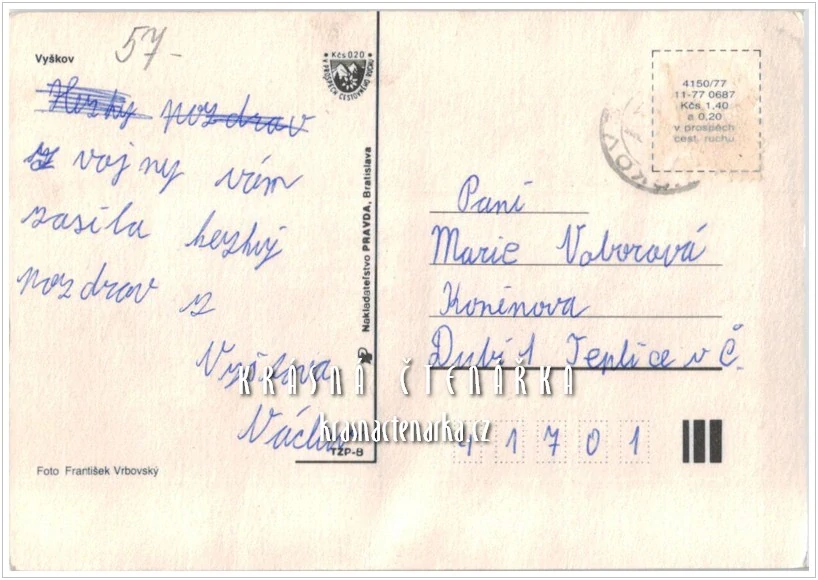 Vyškov
57-
Hezký pozdrav
z vojny vám
zasílá hezký
pozdrav z
Vyškova
Václav
Foto František Vrbovský
Kčs 0.20
V PROSPĚCH CESTOVNÉHO RUCHU
Nakladateľstvo PRAVDA, Bratislava
TŽP-B
4150/77
11-77 0687
Kčs 1,40
a 0,20
v prospěch
cest. ruchu
Paní
Marie Voborová
Koněnova
Dubí 1 Teplice v Č.
41701
KRÁSNÁ ČTENÁŘKA
krasnactenarka.cz